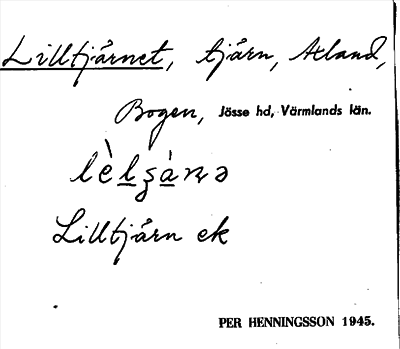 Lilltjärnet, tjärn, Utland,
Bogen, Jösse hd, Värmlands län.
Lilltjärn ek
PER HENNINGSSON 1945.